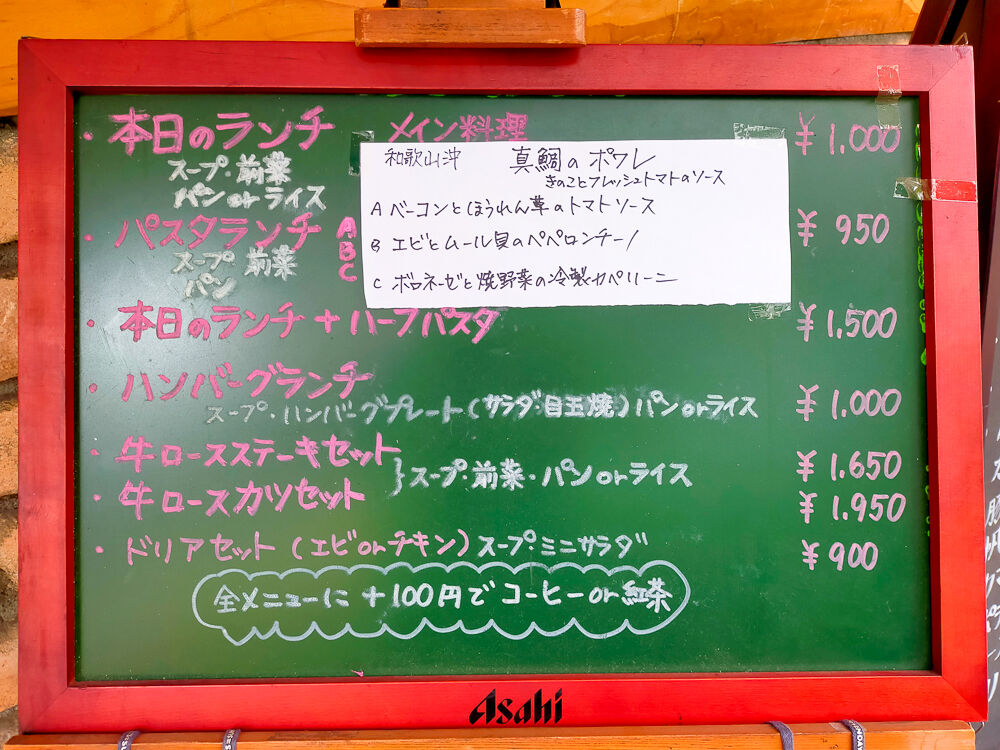 ・本日のランチ メイン料理 ¥1.000
和歌山沖 真鯛のポワレ
きのことフレッシュトマトのソース
スープ・前菜
パンorライス
A ベーコンとほうれん草のトマトソース
・パスタランチ A ¥950
B
C
B エビとムール貝のペペロンチーノ
スープ 前菜
パン
C ボロネーゼと焼野菜の冷製カペリーニ
・本日のランチ+ハーフパスタ ¥1,500
・ハンバーグランチ ¥1.000
スープ・ハンバーグプレート(サラダ・目玉焼)パンorライス
・牛ロースステーキセット ¥1.650
}スープ・前菜・パンorライス
・牛ロースカツセット ¥1.950
・ドリアセット(エビorチキン)スープ・ミニサラダ ¥900
全メニューに+100円でコーヒーor紅茶
Asahi